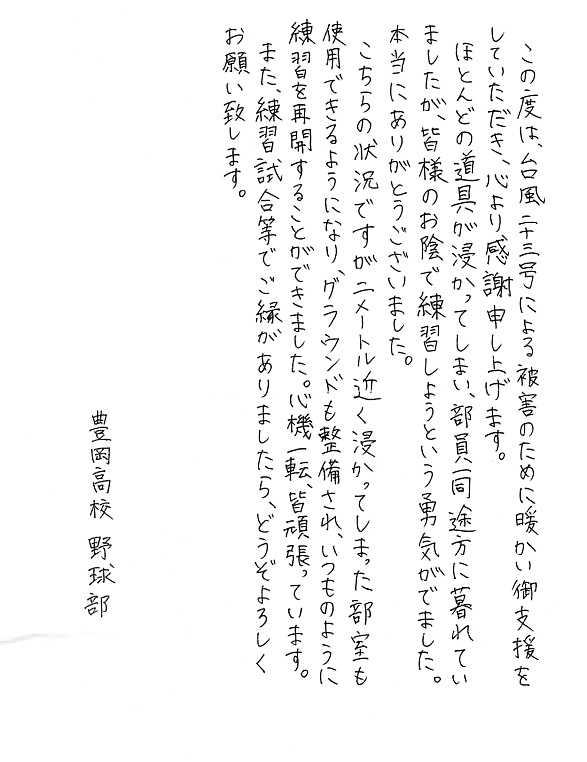 この度は、台風二十三号による被害のために暖かい御支援を
していただき、心より感謝申し上げます。
ほとんどの道具が浸かってしまい、部員一同途方に暮れてい
ましたが、皆様のお陰で練習しようという勇気がでました。
本当にありがとうございました。
こちらの状況ですが二メートル近く浸かってしまった部室も
使用できるようになり、グラウンドも整備され、いつものように
練習を再開することができました。心機一転、皆頑張っています。
また、練習試合等でご縁がありましたら、どうぞよろしく
お願い致します。
豊岡高校 野球部